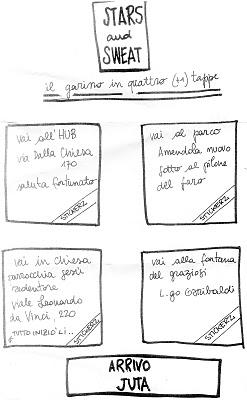 STARS
and
SWEAT
il garino in quattro (++) tappe
vai all'HUB
via Dalla Chiesa
170
saluta fortunato
STICKERZ
vai al parco
Amendola nuovo
sotto al pilone
del faro
STICKERZ
vai in chiesa
parrocchia gesù
redentore
viale Leonardo
da Vinci, 220
TUTTO INIZIÒ LÌ...
STICKERZ
vai alla fontana
del graziosi
L.go Garibaldi
STICKERZ
ARRIVO
JUTA